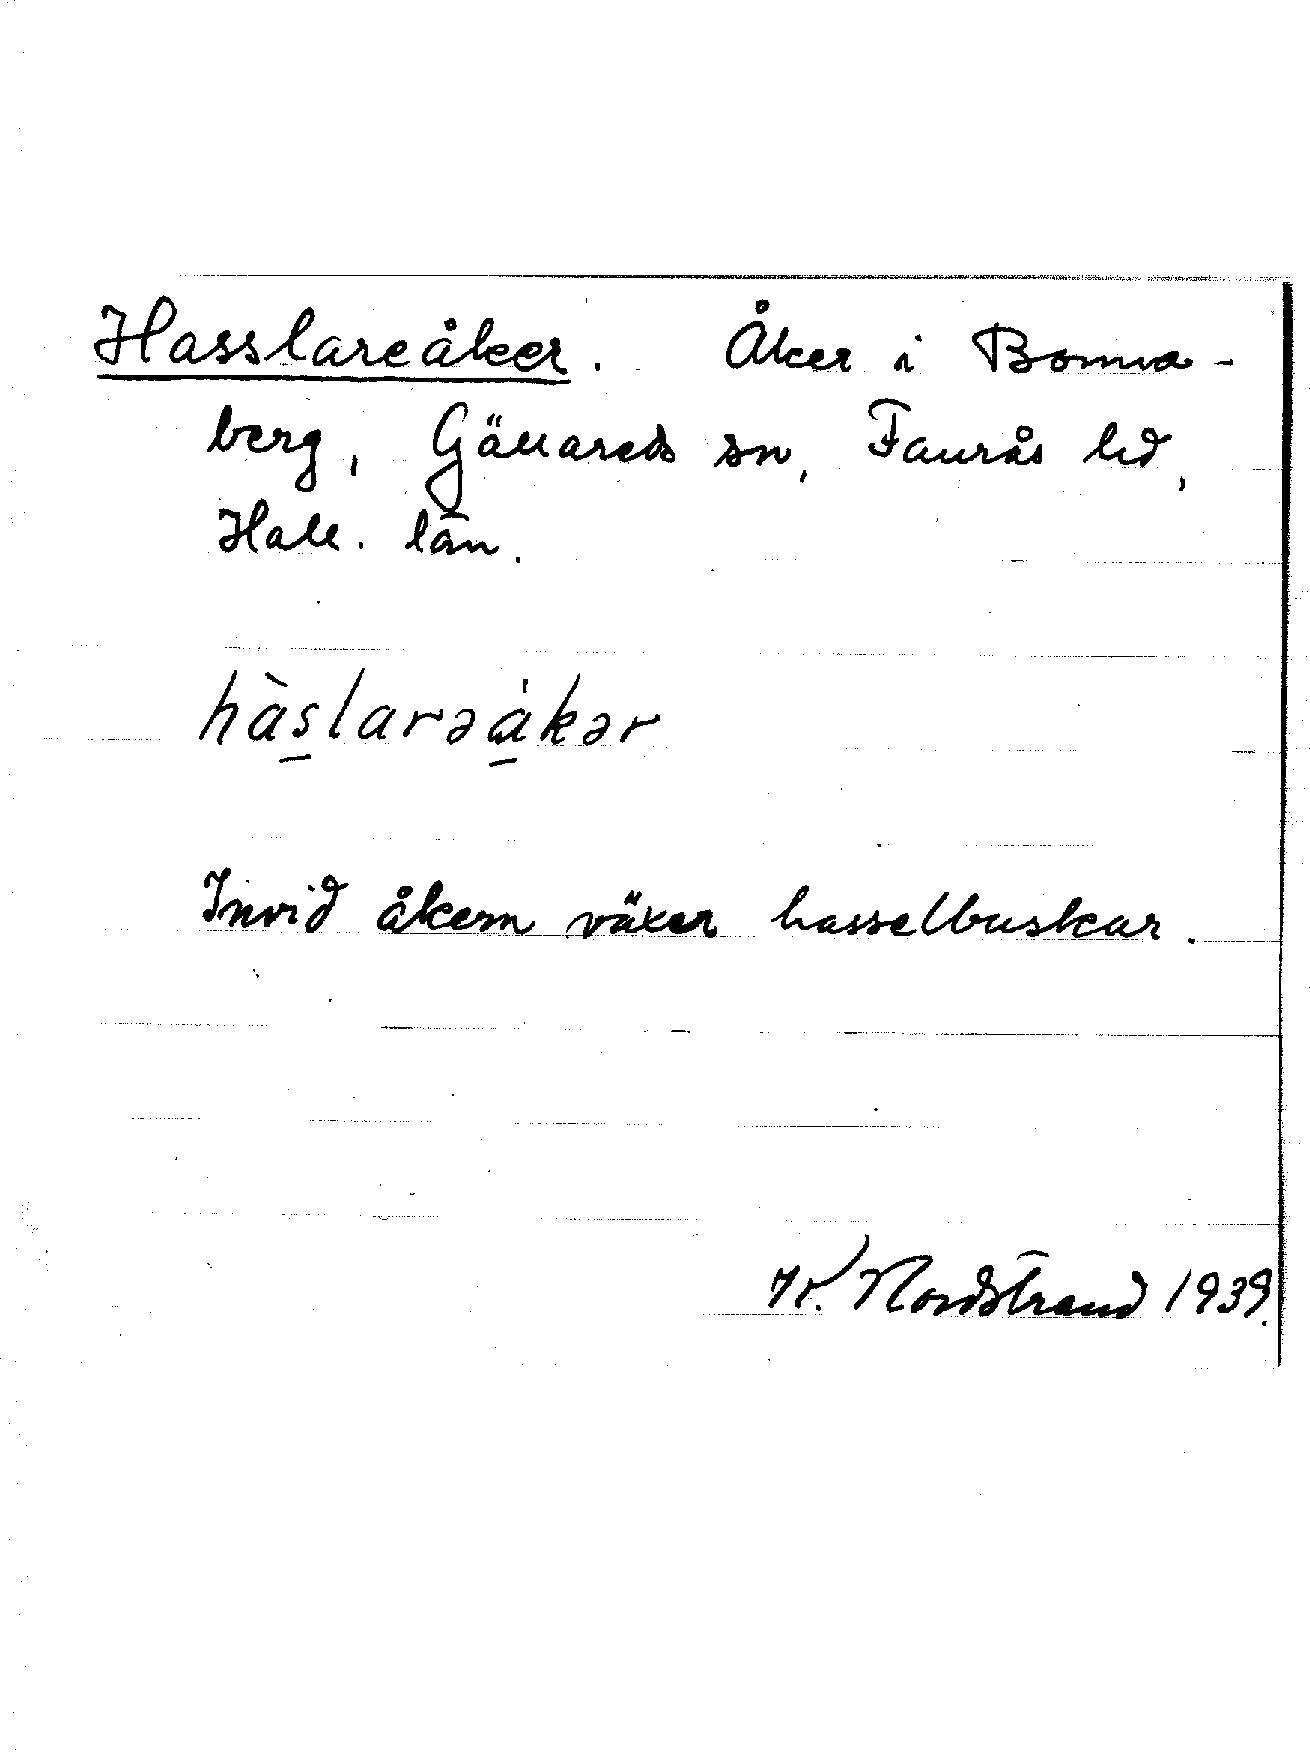 Hasslareåker. Åker i Bomma-
berg, Gällareds sn, Faurås hd,
Hall. län.
hàs̠larəå̠kər
Invid åkern växer hasselbuskar.
K. Nordstrand 1939.